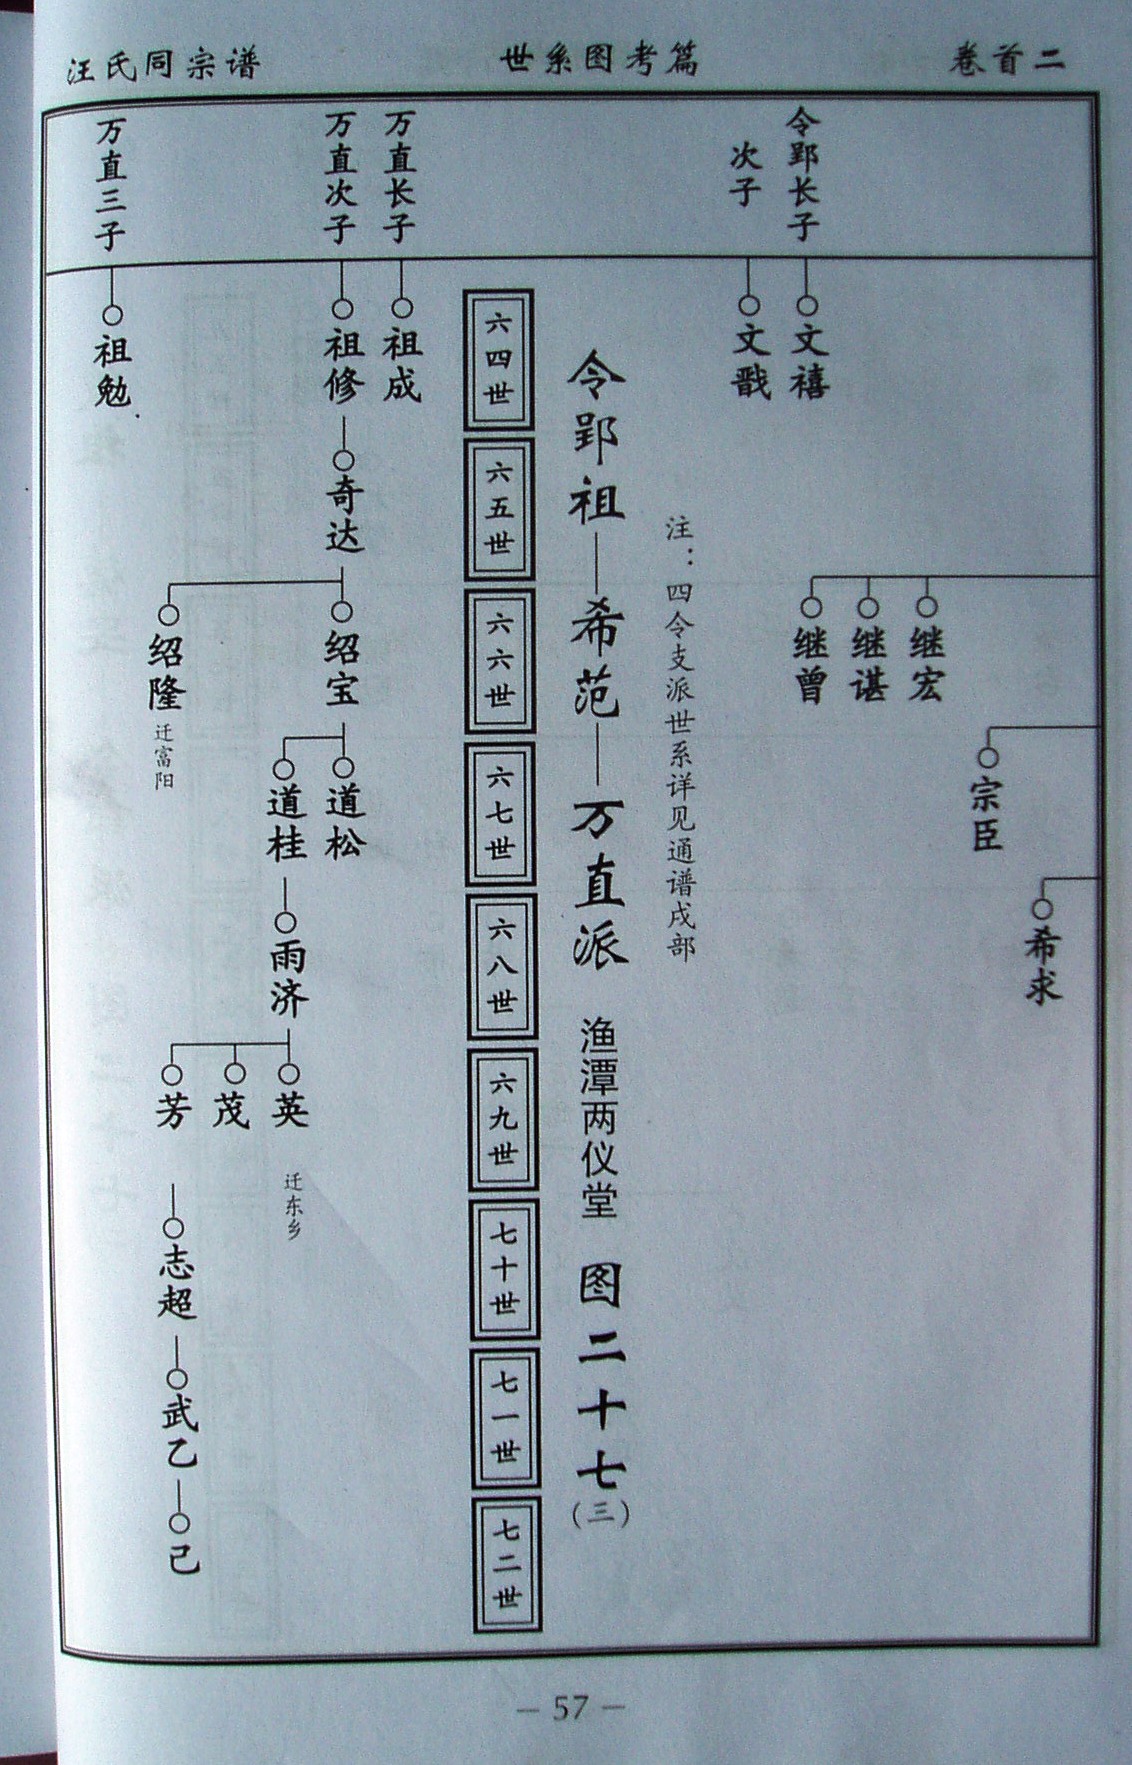 汪氏同宗谱
世系图考篇
卷首二
令郢长子
文禧
次子
文戬
继宏
继谌
继曾
宗臣
希求
注：四令支派世系详见通谱戌部
令郢祖—希范—万直派 渔潭两仪堂 图二十七(三)
六四世
六五世
六六世
六七世
六八世
六九世
七十世
七一世
七二世
万直长子
祖成
万直次子
祖修
奇达
绍宝
绍隆
迁富阳
道松
道桂
雨济
英
迁东乡
茂
芳
志超
武乙
己
万直三子
祖勉
— 57 —